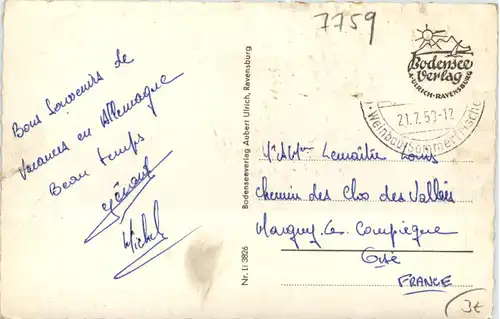 7759
Bodensee
Verlag
A·ULRICH·RAVENSBURG
21.7.59-12
Weinbau, Sommerfrische
Bons Souvenirs de
Vacances en Allemagne
Beau temps
Gérard
Michel
Bodenseeverlag Aubert Ulrich, Ravensburg
Nr. U 3826
Lemaître Louis
chemin des Clos des Vallois
Margny les Compiègne
Oise
FRANCE
3€